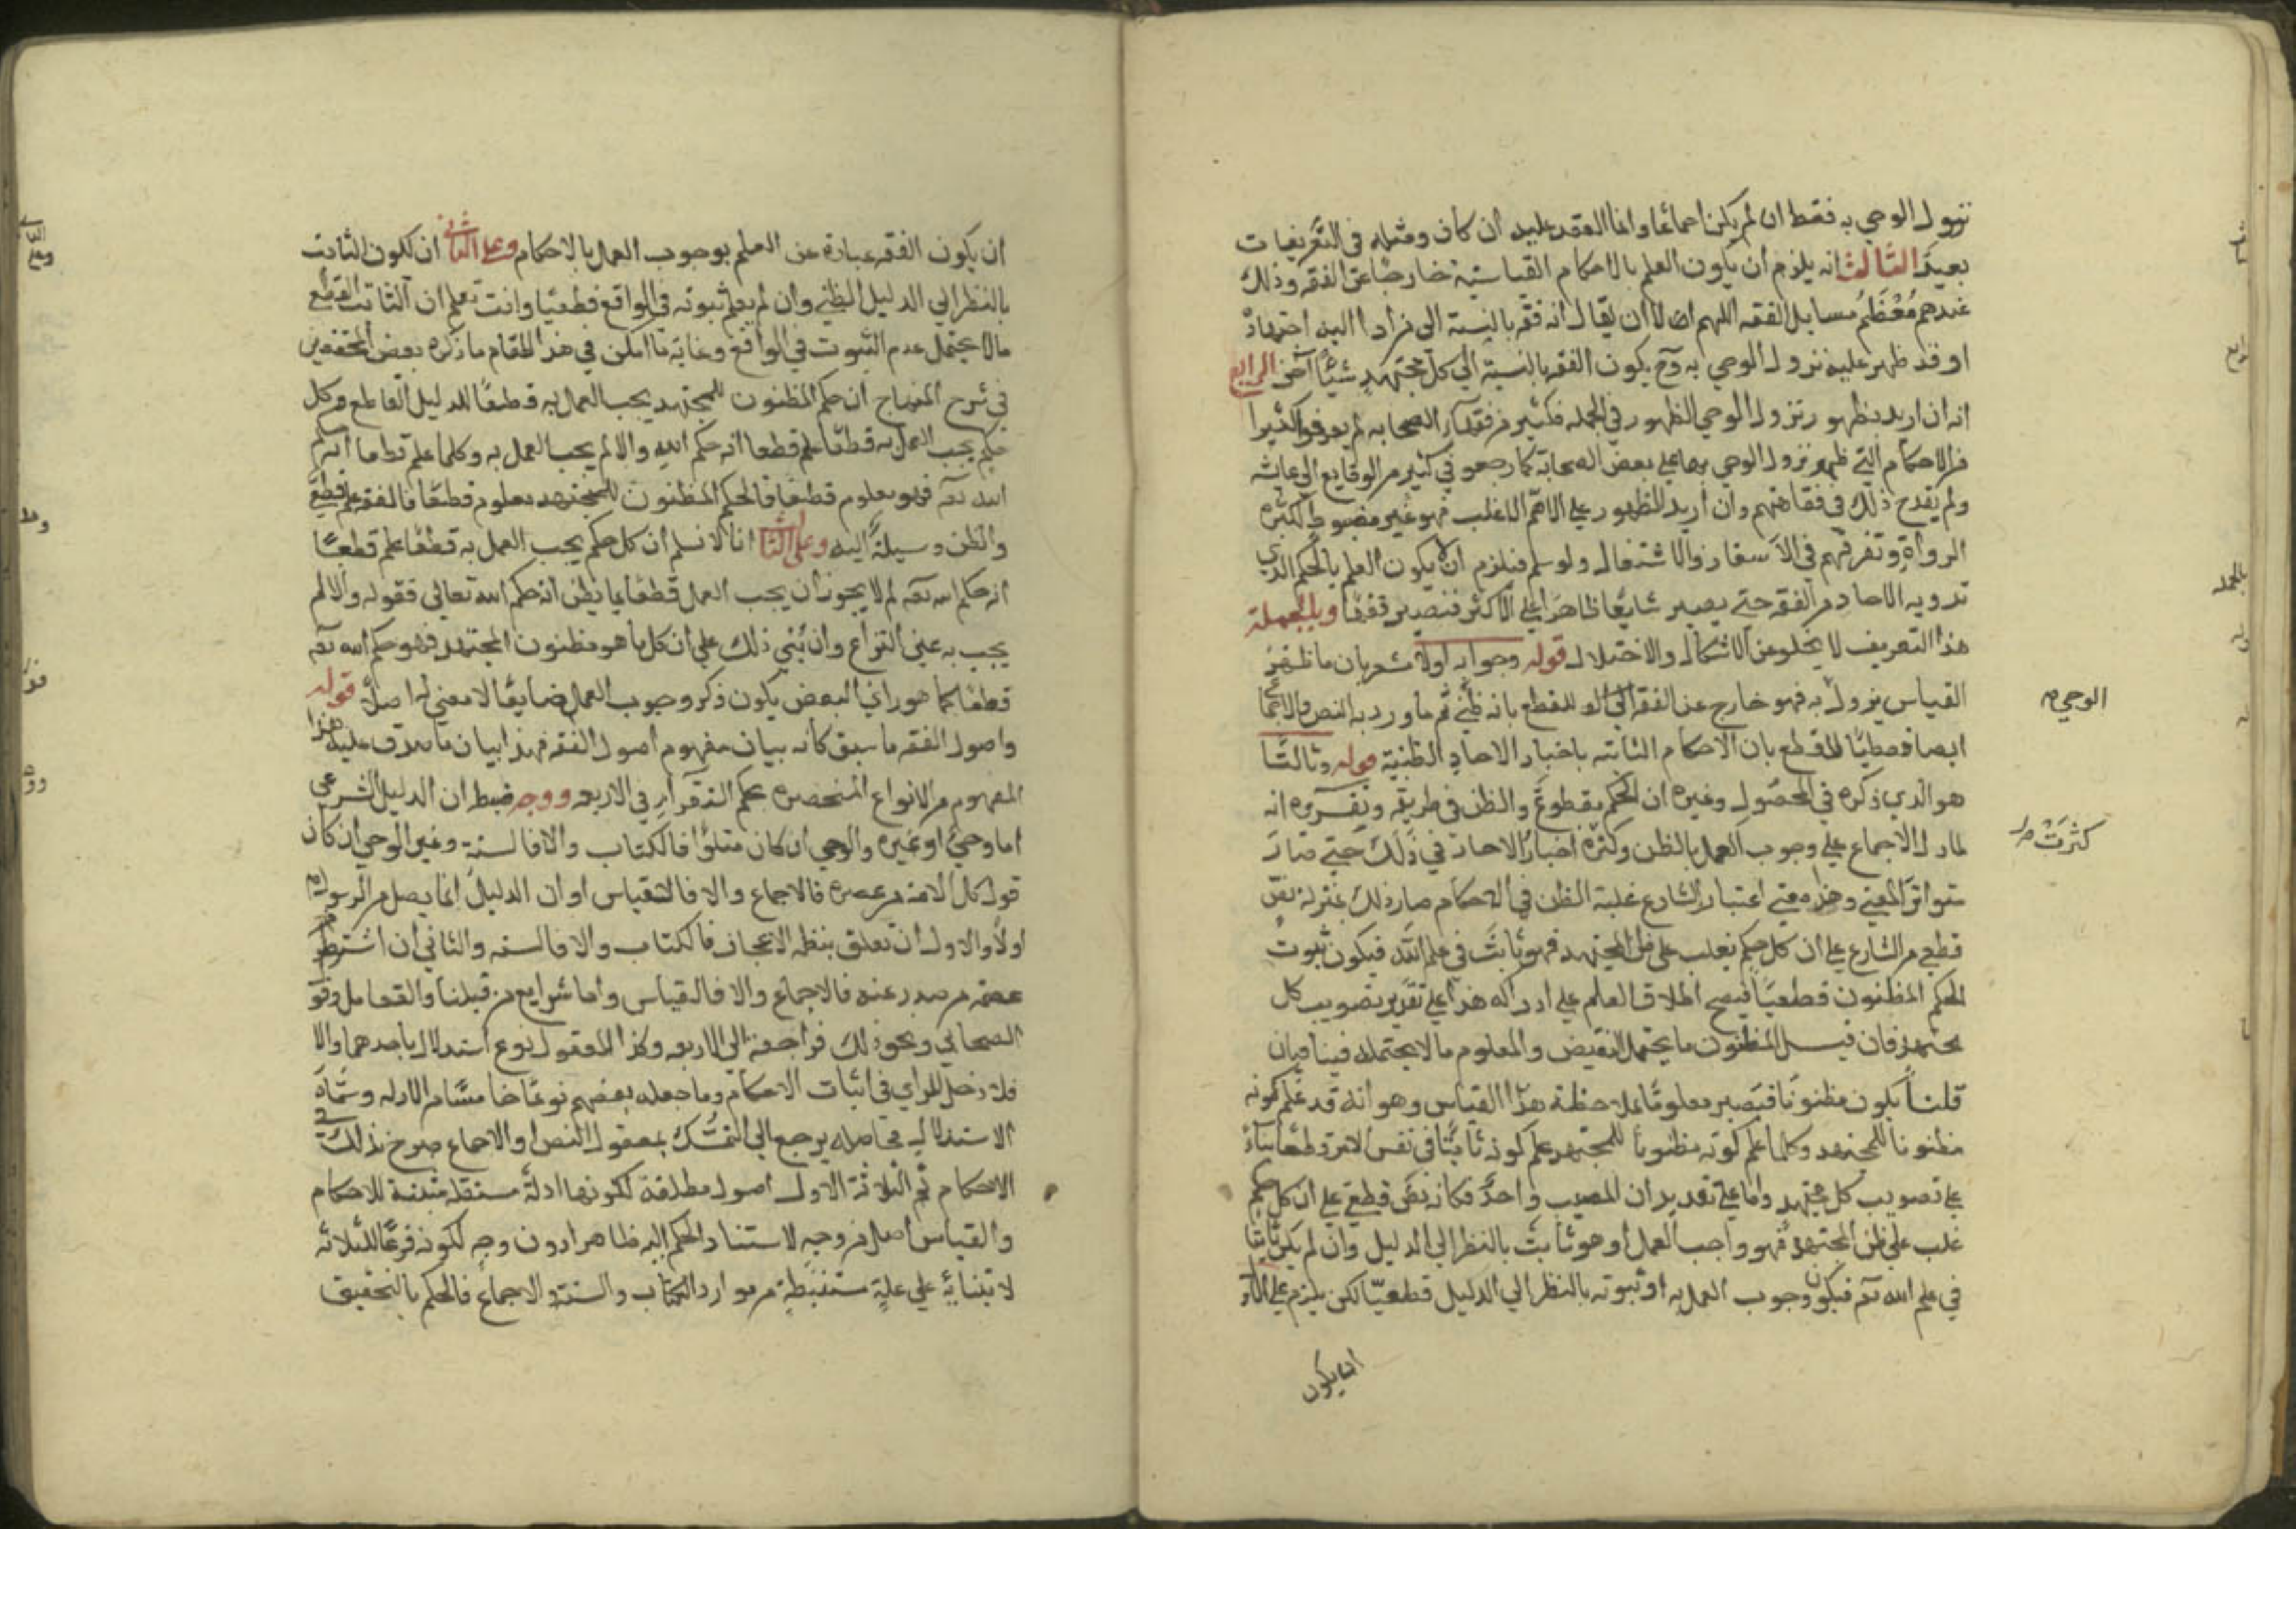 نزول الوحي به فقط ان لم يكن اجماعا وانما العقد عليه ان كان ومثله في التعريفات
بعيد الثالث انه يلزم ان يكون العلم بالاحكام القياسية خارجا عن الفقه وذلك
عندهم مُعْظَمُ مسايل الفقه اللهم الا ان يقال انه فقه بالنسبة الى من ادا اليه اجتهاده
او قد ظهر عليه نزول الوحي به وح يكون الفقه بالنسبة الى كل مجتهد شيئا آخر الرابع
انه ان اريد بظهور نزول الوحي الظهور في الجمله فكثير من فقهاء الصحابه لم يعرفوا كثيرا
من الاحكام التي ظهر نزول الوحي بها على بعض الصحابة كما رجعو في كثير من الوقايع الى عايشه
ولم يقدح ذلك في فقاهتهم وان اريد الظهور على الاعم الاغلب فهو غير مضبوط لكثرة
الرواة وتفرقهم في الاسفار والاشتغال ولو سلم فيلزم ان لا يكون العلم بالحكم الذي
تدويه الاحاد من الفقه حتى يصير شايعا ظاهرا على الاكثر فتصير فقها وبالجملة
هذا التعريف لا يخلو عن الاشكال والاختلال قوله وجوابه اولا مشعر بان ما ظهر
القياس نزول به فهو خارج عن الفقه للقطع بانه ظني ثم ما ورد به النص والاجماع
ايضا قطعيا للقطع بان الاحكام الثابته باخبار الاحاد الظنية قوله وثالثا
هو الذي ذكره في المحصول وغيره ان الحكم مقطوع والظن في طريقه وتقريره انه
لما دل الاجماع على وجوب العمل بالظن وكثرة اخبار الاحاد في ذلك حتى صار
متواتر المعني وهذا معني اعتبار الشارع غلبة الظن في الاحكام صار ذلك بمنزلة نص
قطعي من الشارع على ان كل حكم يغلب على ظن المجتهد فهو ثابت في علم الله فيكون ثبوت
الحكم المظنون قطعيا فيصح اطلاق العلم على ادراكه هذا على تقرير تصويب كل
مجتهد فان قيل المظنون ما يحتمل النقيض والمعلوم ما لا يحتمله فيتنافيان
قلنا يكون مظنونا فيصير معلوما بملاحظة هذا القياس وهو انه قد علم كونه
مظنونا للمجتهد وكلما علم كونه مظنونا للمجتهد علم كونه ثابتا في نفس الامر قطعا بناء
على تصويب كل مجتهد واما على تقدير ان المصيب واحد فكانه نص قطعي على ان كل حكم
غلب على ظن المجتهد فهو واجب العمل او هو ثابت بالنظر الى الدليل وان لم يكن ثابتا
في علم الله تعم فيكون وجوب العمل به او ثبوته بالنظر الى الدليل قطعيا لكن يلزم على الاول
ان يكون
الوحي م
كثرت صل
ان يكون الفقه عبارة عن العلم بوجوب العمل بالاحكام وعلى الثاني ان يكون الثابت
بالنظر الى الدليل الظني وان لم يعلم ثبوته في الواقع قطعيا وانت تعلم ان الثابت القطعي
ما لا يحتمل عدم الثبوت في الواقع وغاية ما امكن في هذا المقام ما ذكره بعض المحققين
في شرح المنهاج ان حكم المظنون للمجتهد يجب العمل به قطعا للدليل القاطع وكل
حكم يجب العمل به قطعا علم قطعا انه حكم الله والا لم يجب العمل به وكلما علم قطعا انه حكم
الله تعه فهو معلوم قطعا فالحكم المظنون للمجتهد معلوم قطعا فالفقه علم قطعي
والظن وسيلة اليه وعلى الثالث انا لا نسلم ان كل حكم يجب العمل به قطعا علم قطعا
انه حكم الله تعه لم لا يجوز ان يجب العمل قطعا بما يظن انه حكم الله تعالى فقوله والا لم
يجب به عين النزاع وان بُني ذلك على ان كل ما هو مظنون المجتهد فهو حكم الله تعه
قطعا كما هو راي البعض يكون ذكر وجوب العمل ضايعا لا معنى له اصلا قوله
واصول الفقه ما سبق كانه بيان مفهوم اصول الفقه فهذا بيان ما صدق عليه هذا
المفهوم من الانواع المنحصره بحكم الاستقراء في الاربعه ووجه ضبطه ان الدليل الشرعي
اما وحي او غيره والوحي ان كان متلوا فالكتاب والا فالسنة وغير الوحي ان كان
قول كل الامة من عصره فالاجماع والا فالقياس او ان الدليل انما يصل من الرسول
اولا والاول ان تعلق بنظمه الاعجاز فالكتاب والا فالسنه والثاني ان اشترط
عصمة من صدر عنه فالاجماع والا فالقياس واما شرايع من قبلنا والتعامل وقول
الصحابي ونحو ذلك فراجعة الى الاربعه وكذا المعقول نوع استدلال باحدهما والا
فلا دخل للراي في اثبات الاحكام وما جعله بعضهم نوعا خامسا من الادله وسماه
الاستدلال فحاصله يرجع الى التمسك بمعقول النص او الاجماع صرح بذلك في
الاحكام ثم الثلاثة الاول اصول مطلقة لكونها ادلة مستقلة مثبتة للاحكام
والقياس اصل من وجه لاستناد الحكم اليه ظاهرا دون وجه لكونه فرعا للثلاثه
لابتنائه على علة مستنبطة من موارد الكتاب والسنة والاجماع فالحكم بالتحقيق